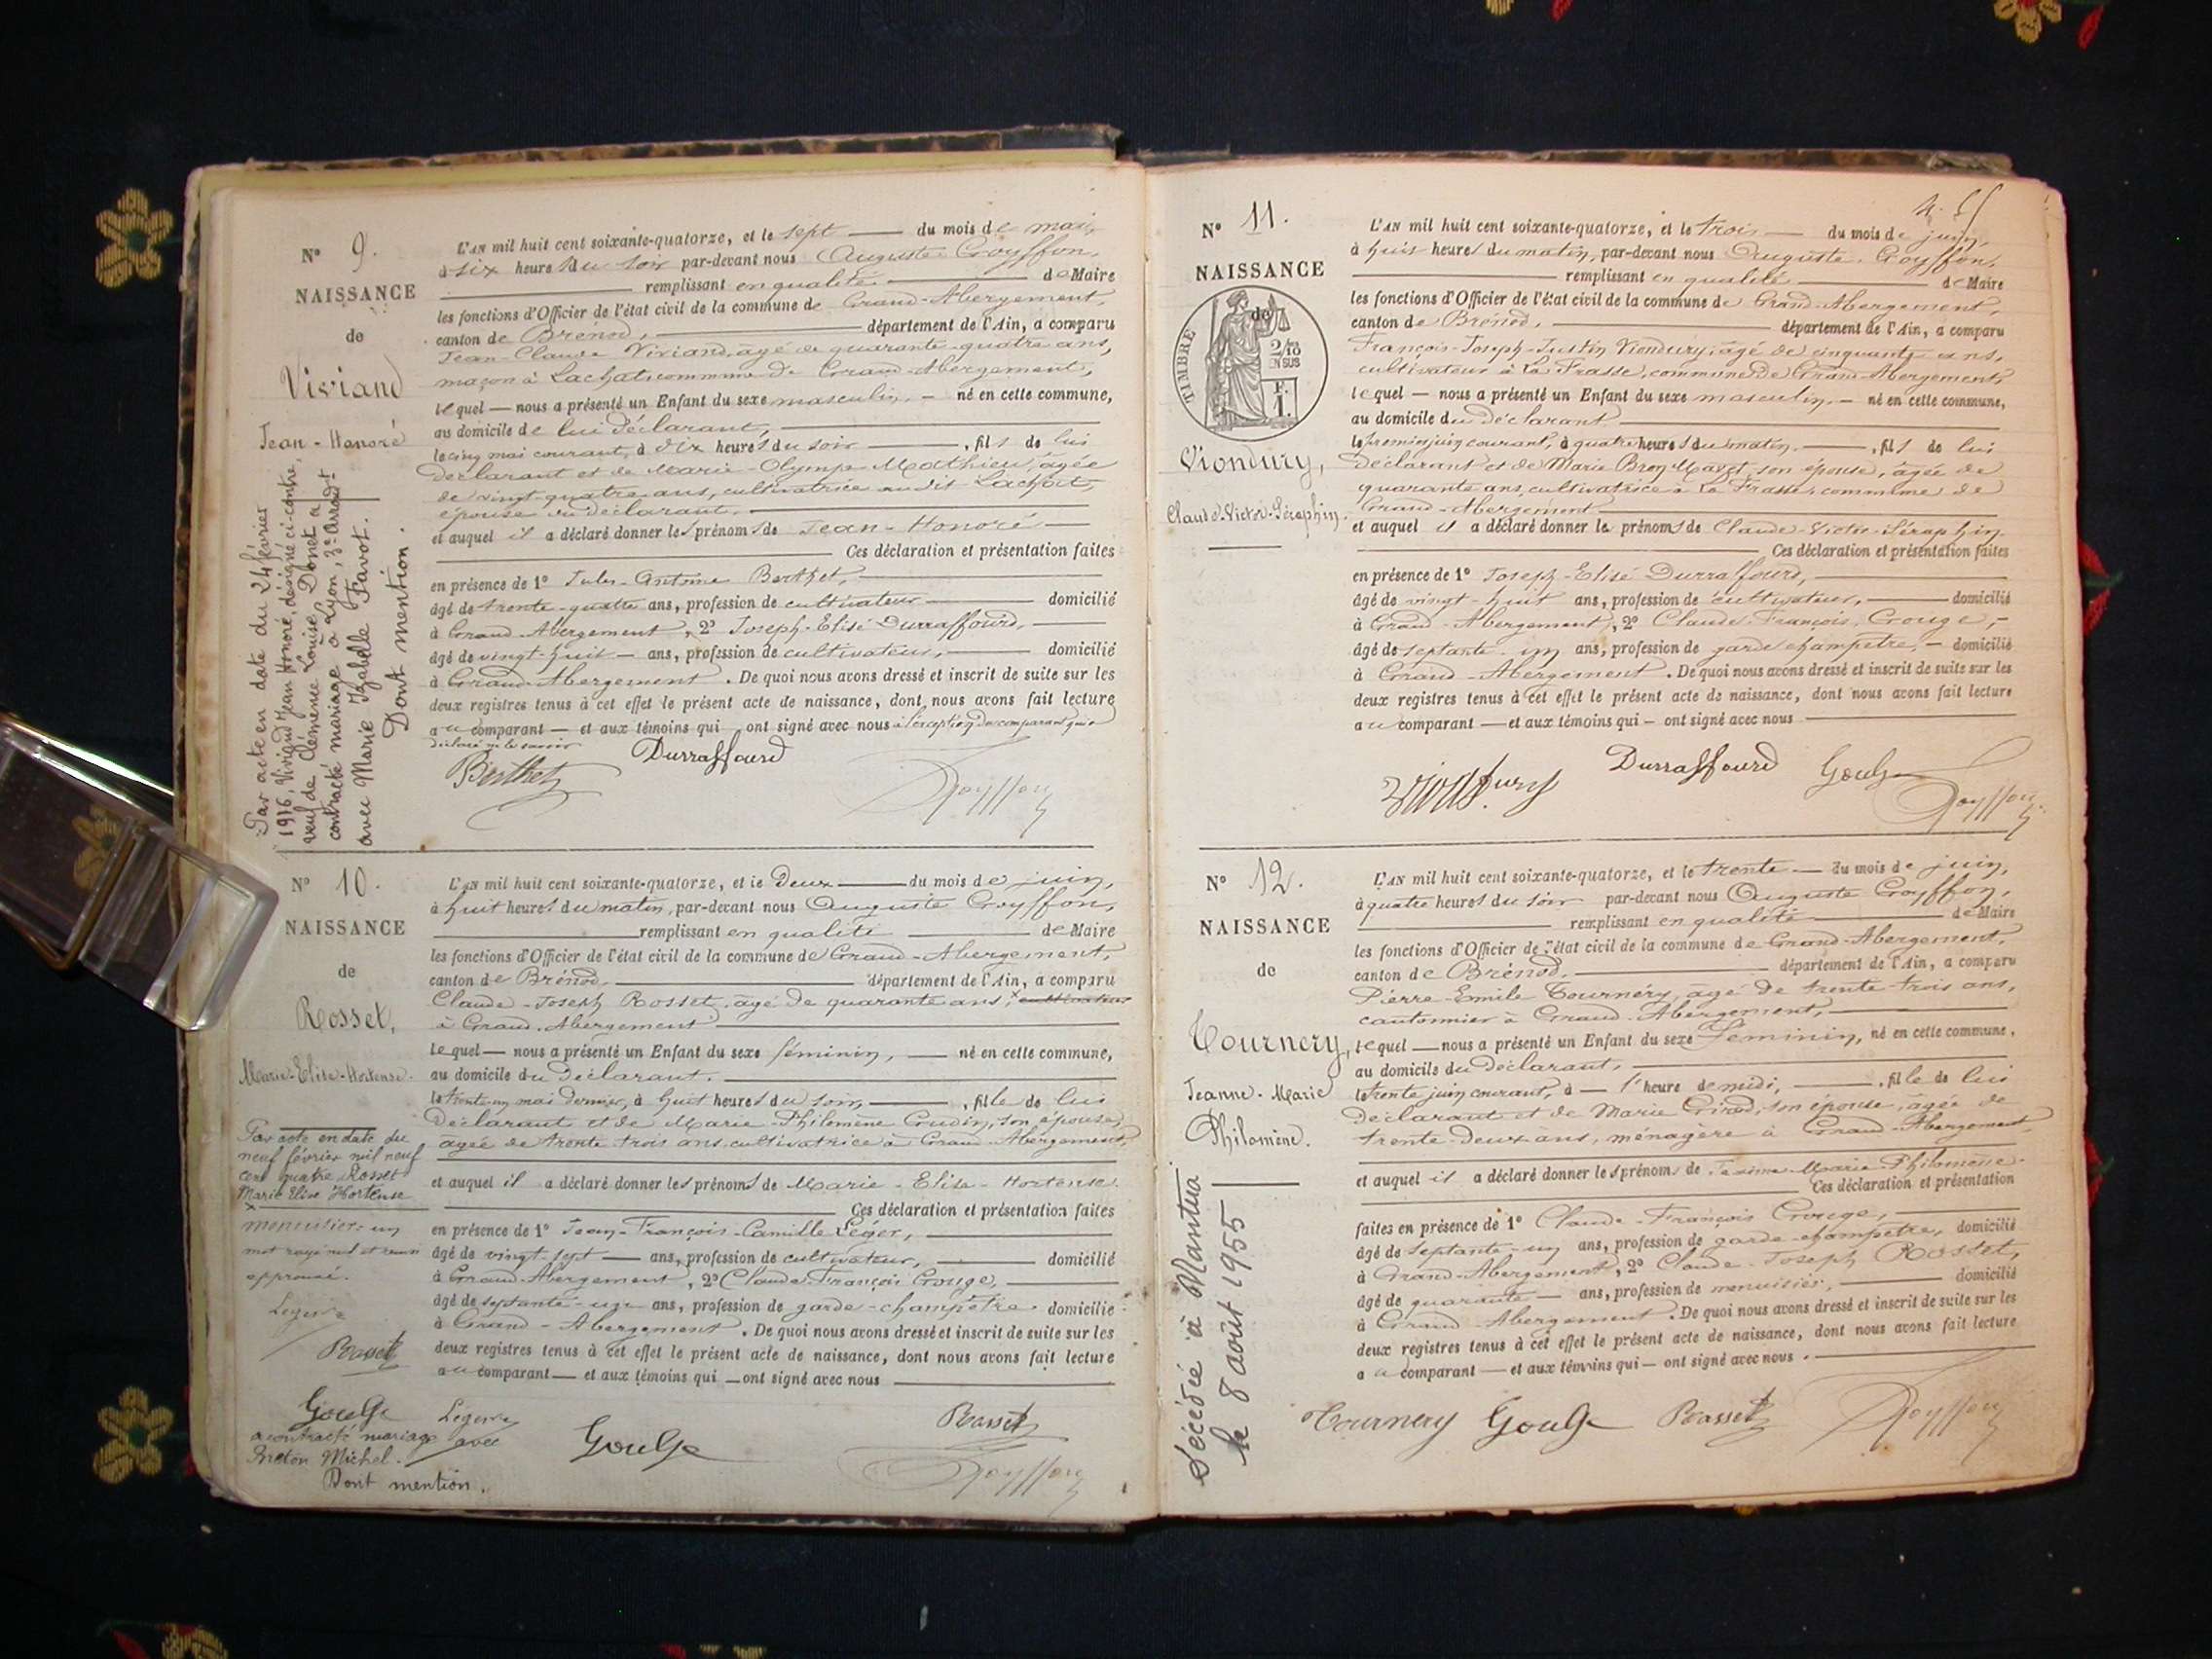 N° 9.
NAISSANCE
de
Viviand
Jean-Honoré
Par acte en date du 24 février
1916, Viviand Jean Honoré, désigné ci-contre,
veuf de Clémence Louise Donet a
contracté mariage à Lyon, 3e arrondt
avec Marie Izabelle Favot.
Dont mention.
L'AN mil huit cent soixante-quatorze, et le sept du mois de mai,
à six heures du soir par-devant nous Auguste Goyffon,
remplissant en qualité de Maire
les fonctions d'Officier de l'état civil de la commune de Grand-Abergement,
canton de Brénod, département de l'Ain, a comparu
Jean-Claude Viviand, âgé de quarante-quatre ans,
maçon à Lachat commune de Grand-Abergement,
lequel nous a présenté un Enfant du sexe masculin, né en cette commune,
au domicile de lui déclarant,
le cinq mai courant, à dix heures du soir, fils de lui
déclarant et de Marie-Olympe Mathieu, âgée
de vingt-quatre ans, cultivatrice audit Lachat,
épouse du déclarant.
et auquel il a déclaré donner les prénoms de Jean-Honoré
Ces déclaration et présentation faites
en présence de 1° Jules-Antoine Berthet,
âgé de trente-quatre ans, profession de cultivateur domicilié
à Grand-Abergement, 2° Joseph-Elisé Durraffourd,
âgé de vingt-huit ans, profession de cultivateur, domicilié
à Grand-Abergement. De quoi nous avons dressé et inscrit de suite sur les
deux registres tenus à cet effet le présent acte de naissance, dont nous avons fait lecture
au comparant et aux témoins qui ont signé avec nous à l'exception du comparant qui a
déclaré ne le savoir
Berthet Durraffourd Goyffon
N° 10.
NAISSANCE
de
Rosset,
Marie-Elisa-Hortense.
Par acte en date du
neuf février mil neuf
cent quatre Rosset
Marie Elise Hortense
x menuisier un
mot rayé nul
approuvé.
Rosset
Gouge
a contracté mariage avec
Breton Michel.
Dont mention.
L'AN mil huit cent soixante-quatorze, et le Deux du mois de juin,
à huit heures du matin, par-devant nous Auguste Goyffon,
remplissant en qualité de Maire
les fonctions d'Officier de l'état civil de la commune de Grand-Abergement,
canton de Brénod, département de l'Ain, a comparu
Claude-Joseph Rosset, âgé de quarante ans, x cultivateur
à Grand-Abergement
lequel nous a présenté un Enfant du sexe féminin, né en cette commune,
au domicile du déclarant.
le trente-un mai dernier, à huit heures du soir, fille de lui
déclarant et de Marie-Philomène Goudin, son épouse,
âgée de trente trois ans, cultivatrice à Grand-Abergement,
et auquel il a déclaré donner les prénoms de Marie-Elisa-Hortense.
Ces déclaration et présentation faites
en présence de 1° Jean-François-Camille Léger,
âgé de vingt-sept ans, profession de cultivateur, domicilié
à Grand-Abergement, 2° Claude-François Gouge,
âgé de septante-un ans, profession de garde-champêtre domicilié
à Grand-Abergement. De quoi nous avons dressé et inscrit de suite sur les
deux registres tenus à cet effet le présent acte de naissance, dont nous avons fait lecture
au comparant et aux témoins qui ont signé avec nous
Gouge Rosset
Goyffon
N° 11.
NAISSANCE
de
TIMBRE
2/10
EN SUS
F.
1.
Viondury,
Claude-Victor-Séraphin.
L'AN mil huit cent soixante-quatorze, et le trois du mois de juin,
à huit heures du matin, par-devant nous Auguste Goyffon,
remplissant en qualité de Maire
les fonctions d'Officier de l'état civil de la commune de Grand-Abergement,
canton de Brénod, département de l'Ain, a comparu
François-Joseph-Justin Viondury, âgé de cinquante ans,
cultivateur à La Frasse, commune de Grand-Abergement,
lequel nous a présenté un Enfant du sexe masculin, né en cette commune,
au domicile du déclarant
le premier juin courant, à quatre heures du matin, fils de lui
déclarant et de Marie Bron Mavet, son épouse, âgée de
quarante ans, cultivatrice à La Frasse, commune de
Grand-Abergement
et auquel il a déclaré donner les prénoms de Claude-Victor-Séraphin.
Ces déclaration et présentation faites
en présence de 1° Joseph-Elisé Durraffourd,
âgé de vingt-huit ans, profession de cultivateur, domicilié
à Grand-Abergement, 2° Claude François Gouge,
âgé de septante-un ans, profession de garde champêtre, domicilié
à Grand-Abergement. De quoi nous avons dressé et inscrit de suite sur les
deux registres tenus à cet effet le présent acte de naissance, dont nous avons fait lecture
au comparant et aux témoins qui ont signé avec nous
Viondury Durraffourd Gouge Goyffon
N° 12.
NAISSANCE
de
Tournery,
Jeanne-Marie
Philomène.
Décédée à Mantua
le 8 août 1955
L'AN mil huit cent soixante-quatorze, et le trente du mois de juin,
à quatre heures du soir par-devant nous Auguste Goyffon,
remplissant en qualité de Maire
les fonctions d'Officier de l'état civil de la commune de Grand-Abergement,
canton de Brénod, département de l'Ain, a comparu
Pierre-Emile Tournéry, âgé de trente trois ans,
cantonnier à Grand-Abergement,
lequel nous a présenté un Enfant du sexe Féminin, né en cette commune,
au domicile du déclarant,
le trente juin courant, à l'heure de midi, fille de lui
déclarant et de Marie Girod, son épouse, âgée de
trente-deux ans, ménagère à Grand-Abergement
et auquel il a déclaré donner les prénoms de Jeanne Marie-Philomène.
Ces déclaration et présentation
faites en présence de 1° Claude-François Gouge,
âgé de septante-un ans, profession de garde-champêtre, domicilié
à Grand-Abergement, 2° Claude-Joseph Rosset,
âgé de quarante ans, profession de menuisier, domicilié
à Grand-Abergement. De quoi nous avons dressé et inscrit de suite sur les
deux registres tenus à cet effet le présent acte de naissance, dont nous avons fait lecture
au comparant et aux témoins qui ont signé avec nous.
Tournery Gouge Rosset Goyffon